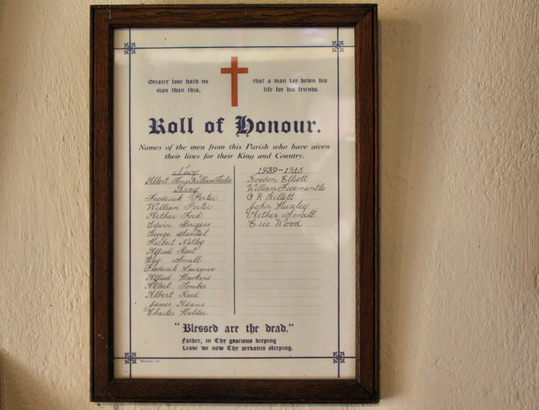 Greater love hath no man than this,
that a man lay down his life for his friends.
Roll of Honour.
Names of the men from this Parish who have given
their lives for their King and Country.
Navy
Albert
Army
Frederick Porter
William Porter
Arthur Ford
Edwin Burgess
George Samuel
Herbert Nutley
Alfred
Guy Small
Frederick Lawrence
Alfred Hawkins
Albert Tombs
Albert Reed
James Adams
Charles Holder
1939-1945
Gordon Elliott
William Freemantle
G R Hellett
John Huxley
Arthur Small
Eric Wood
"Blessed are the dead."
Father, in Thy gracious keeping
Leave we now Thy servants sleeping.